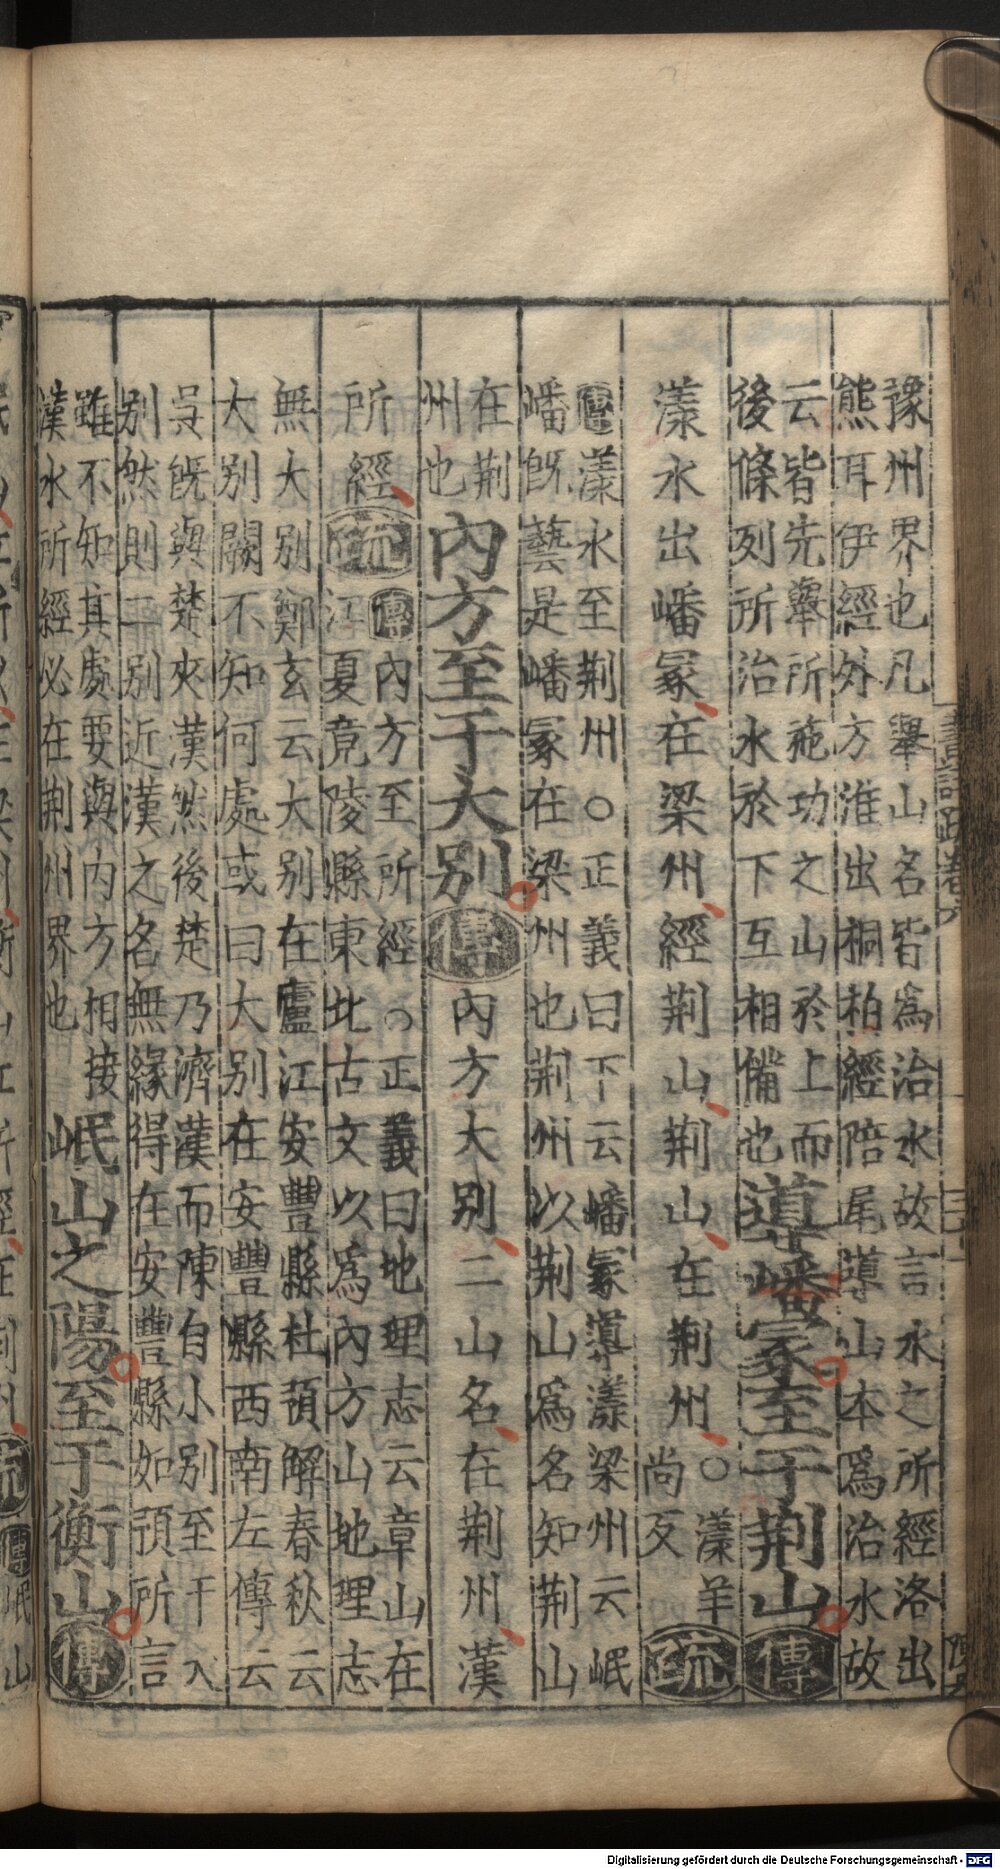 豫州界也凡舉山名皆爲治水故言水之所經洛出
熊耳伊經外方淮出桐柏經陪尾導山本爲治水故
云皆先舉所施功之山於上而
後條列所治水於下互相備也
導嶓冢至于荆山傳
漾水出嶓冢在梁州經荆山荆山在荆州○
漾羊
尚反
疏
傳漾水至荆州○正義曰下云嶓冢導漾梁州云岷
嶓既藝是嶓冢在梁州也荆州以荆山爲名知荆山
在荆
州也
內方至于大别傳內方大别二山名在荆州漢
所經疏
傳內方至所經○正義曰地理志云章山在
江夏竟陵縣東北古文以爲內方山地理志
無大别鄭玄云大别在廬江安豐縣杜預解春秋云
大别闕不知何處或曰大别在安豐縣西南左傳云
吳既與楚夾漢然後楚乃濟漢而陳自小别至于大
别然則二别近漢之名無緣得在安豐縣如預所言
雖不知其處要與內方相接
漢水所經必在荆州界也
岷山之陽至于衡山傳
Digitalisierung gefördert durch die Deutsche Forschungsgemeinschaft - DFG